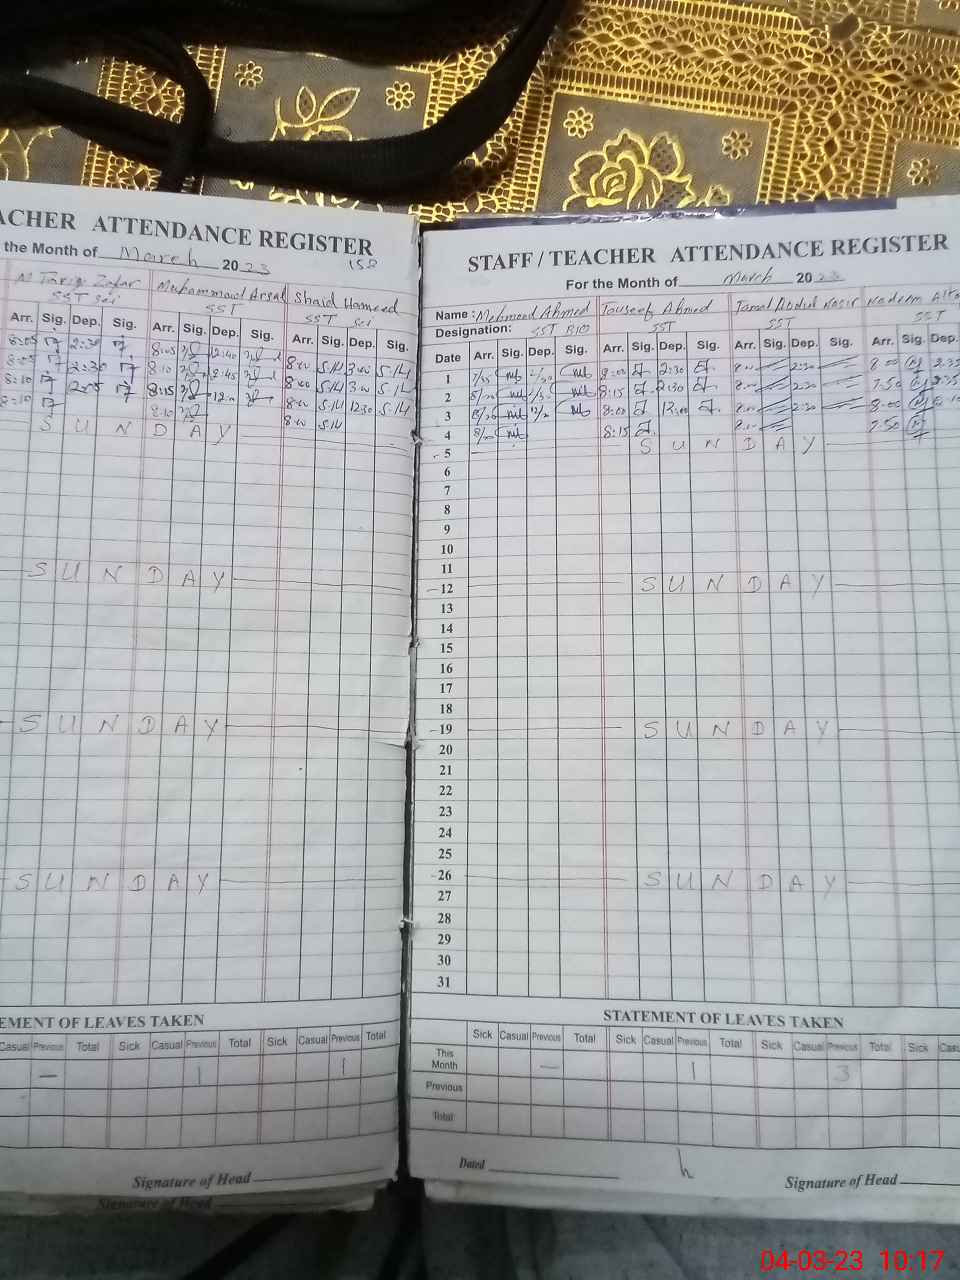 ACHER ATTENDANCE REGISTER
the Month of March 2023
158
M Tariq Zafar Muhammad Arsal Shaid Hameed
SST Sci SST SST Sci
Arr. Sig. Dep. Sig. Arr. Sig. Dep. Sig. Arr. Sig. Dep. Sig.
8:05 2:30 8:05 12:40 8:00 S.H 3:00 S.H
8:05 2:30 8:10 2:45 8:00 S.H 3:00 S.H
8:10 8:15 12:00 8:00 S.H 12:30 S.H
8:10 8:10 8:00 S.H
S U N D A Y
S U N D A Y
S U N D A Y
S U N D A Y
EMENT OF LEAVES TAKEN
Casual Previous Total Sick Casual Previous Total Sick Casual Previous Total
— 1 1
Signature of Head
Signature of Head
STAFF / TEACHER ATTENDANCE REGISTER
For the Month of March 2023
Name : Mehmood Ahmed Touseef Ahmed Jamal Abdul Nasir Nadeem
Designation: SST BIO SST SST SST
Date Arr. Sig. Dep. Sig. Arr. Sig. Dep. Sig. Arr. Sig. Dep. Sig. Arr. Sig. Dep.
1 8:00 2:30 8:00 2:30 8:00 2:35
2 8:15 2:30 8:00 2:30 7:50
3 8:00 12:00 8:00 2:30 8:00
4 8:15 8:00 7:50
5 S U N D A Y
6
7
8
9
10
11
12 S U N D A Y
13
14
15
16
17
18
19 S U N D A Y
20
21
22
23
24
25
26 S U N D A Y
27
28
29
30
31
STATEMENT OF LEAVES TAKEN
Sick Casual Previous Total Sick Casual Previous Total Sick Casual Previous Total Sick Casu
This Month — 1 3
Previous
Total
Dated
Signature of Head
04-03-23 10:17